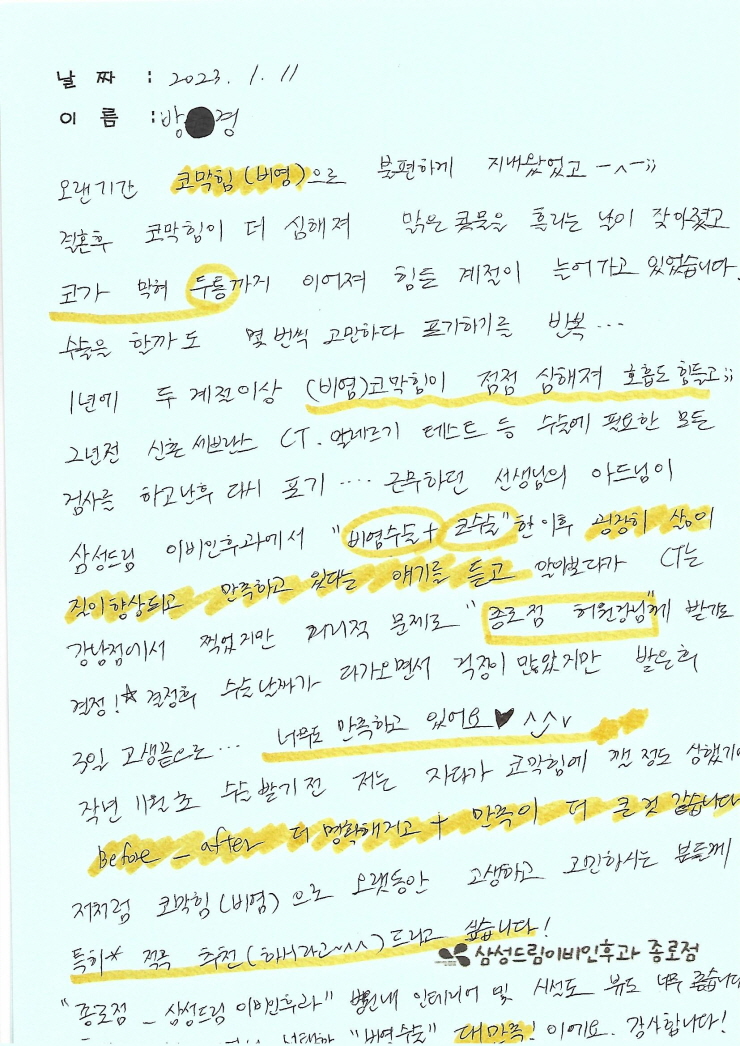 날 짜 : 2023. 1. 11
이 름 : 방 경
오랜기간 코막힘(비염)으로 불편하게 지내왔었고 -^-;;
결혼후 코막힘이 더 심해져 맑은 콧물을 흘리는 날이 잦아졌고
코가 막혀 두통까지 이어져 힘든 계절이 늘어가고 있었습니다.
수술을 할까도 몇 번씩 고민하다 포기하기를 반복...
1년에 두 계절이상 (비염)코막힘이 점점 심해져 호흡도 힘들고;;
2년전 신촌 세브란스 CT. 알레르기 테스트 등 수술에 필요한 모든
검사를 하고난후 다시 포기.... 근무하던 선생님의 아드님이
삼성드림 이비인후과에서 "비염수술+코수술"한 이후 굉장히 삶이
질이 향상되고 만족하고 있다는 얘기를 듣고 알아보다가 CT는
강남점에서 찍었지만 거리적 문제로 "종로점 허원장님"께 받기로
결정!☆ 결정후 수술날짜가 다가오면서 걱정이 많았지만 받은후
3일 고생끝으로... 너무도 만족하고 있어요♥ ^^v
작년 11월초 수술받기전 저는 자다가 코막힘에 깰 정도 상했기에
Before - after 더 명확해지고 + 만족이 더 큰 것 같습니다
저처럼 코막힘(비염)으로 오랫동안 고생하고 고민하시는 분들께
특히* 적극 추천(하시라고~^^)드리고 싶습니다!
삼성드림이비인후과 종로점
"종로점 - 삼성드림 이비인후과" 병원내 인테리어 및 시선도 뷰도 너무 좋습니다
"비염수술" 대만족! 이에요. 감사합니다!